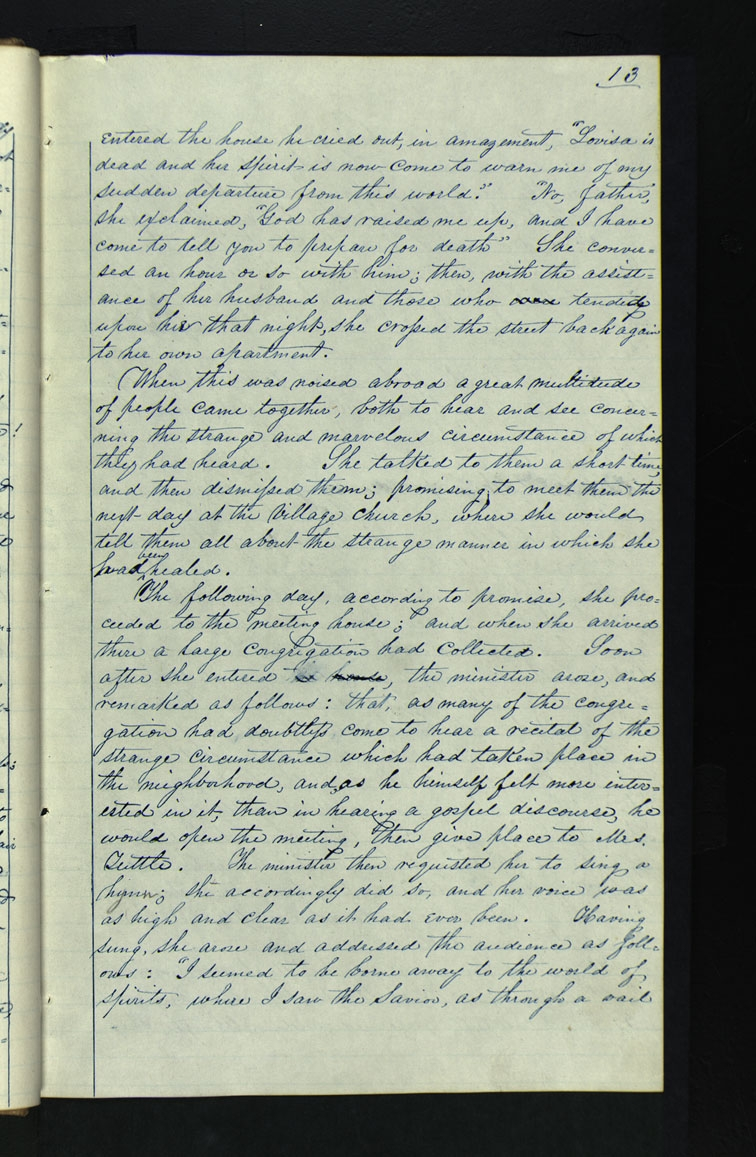 13
entered the house he cried out, in amazement, "Lovisa is
dead and her spirit is now come to warn me of my
sudden departure from this world." "No, father,
she exclaimed, "God has raised me up, and I have
come to tell you to prepare for death" She conver=
sed an hour or so with him; then, with the assist=
ance of her husband and those who tended
upon her that night, she crossed the street back again
to her own apartment.
When this was noised abroad a great multitude
of people came together, both to hear and see concer=
ning the strange and marvelous circumstance of which
they had heard. She talked to them a short time,
and then dismissed them; promising to meet them the
next day at the village church, where she would
tell them all about the strange manner in which she
had been healed.
The following day, according to promise, she pro=
ceeded to the meeting house; and when she arrived
there a large congrigation had collected. Soon
after she entered house, the minister arose, and
remarked as follows: that, as many of the congre=
gation had doubtless come to hear a recital of the
strange circumstance which had taken place in
the neighborhood, and, as he himself felt more inter=
ested in it, than in hearing a gospel discourse, he
would open the meeting, then give place to Mrs.
Tuttle. The minister then requested her to sing a
hymn; she accordingly did so, and her voice was
as high and clear as it had ever been. Having
sung, she arose and addressed the audience as foll=
ows: "I seemed to be borne away to the world of
spirits, where I saw the Savior, as through a vail